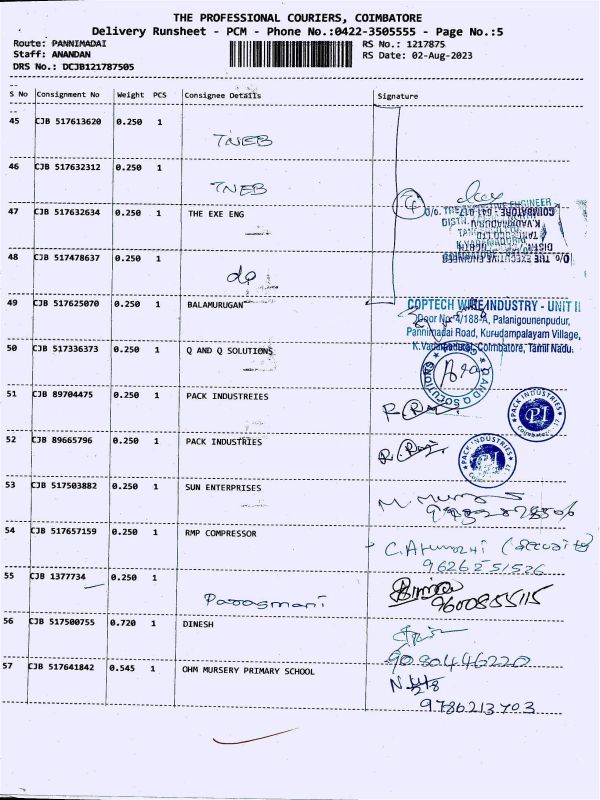 THE PROFESSIONAL COURIERS, COIMBATORE
Delivery Runsheet - PCM - Phone No.:0422-3505555 - Page No.:5
Route: PANNIMADAI
Staff: ANANDAN
DRS No.: DCJB121787505
RS No.: 1217875
RS Date: 02-Aug-2023
S No Consignment No Weight PCS Consignee Details Signature
45 CJB 517613620 0.250 1
TNEB
46 CJB 517632312 0.250 1
TNEB
47 CJB 517632634 0.250 1 THE EXE ENG
48 CJB 517478637 0.250 1
do
49 CJB 517625070 0.250 1 BALAMURUGAN
COPTECH WIRE INDUSTRY - UNIT II
Door No: 4/188-A, Palanigounenpudur,
Pannimadai Road, Kurudampalayam Village,
Coimbatore, Tamil Nadu.
50 CJB 517336373 0.250 1 Q AND Q SOLUTIONS
Q AND Q SOLUTIONS
51 CJB 89704475 0.250 1 PACK INDUSTREIES
PACK INDUSTRIES
PI
52 CJB 89665796 0.250 1 PACK INDUSTRIES
PACK INDUSTRIES
PI
53 CJB 517503882 0.250 1 SUN ENTERPRISES
54 CJB 517657159 0.250 1 RMP COMPRESSOR
9626251526
55 CJB 1377734 0.250 1
Parasmani
9600855115
56 CJB 517500755 0.720 1 DINESH
9080446220
57 CJB 517641842 0.545 1 OHM MURSERY PRIMARY SCHOOL
9786213703